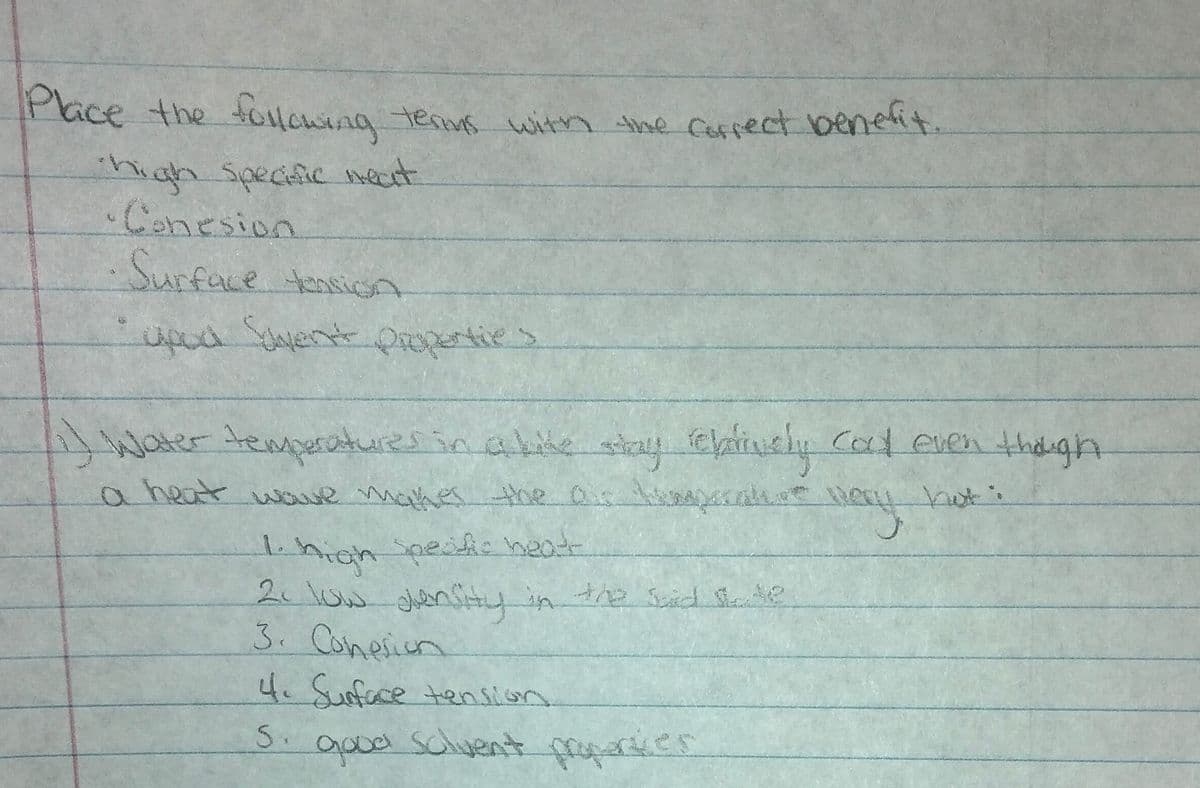 Place the following terms with the correct benefit.
· high specific heat
· Cohesion
· Surface tension
· good Solvent properties
1) Water temperatures in a lake stay relatively cool even though
a heat wave makes the air temperature very hot:
1. high specific heat
2. low density in the solid state
3. Cohesion
4. Surface tension
5. good solvent properties